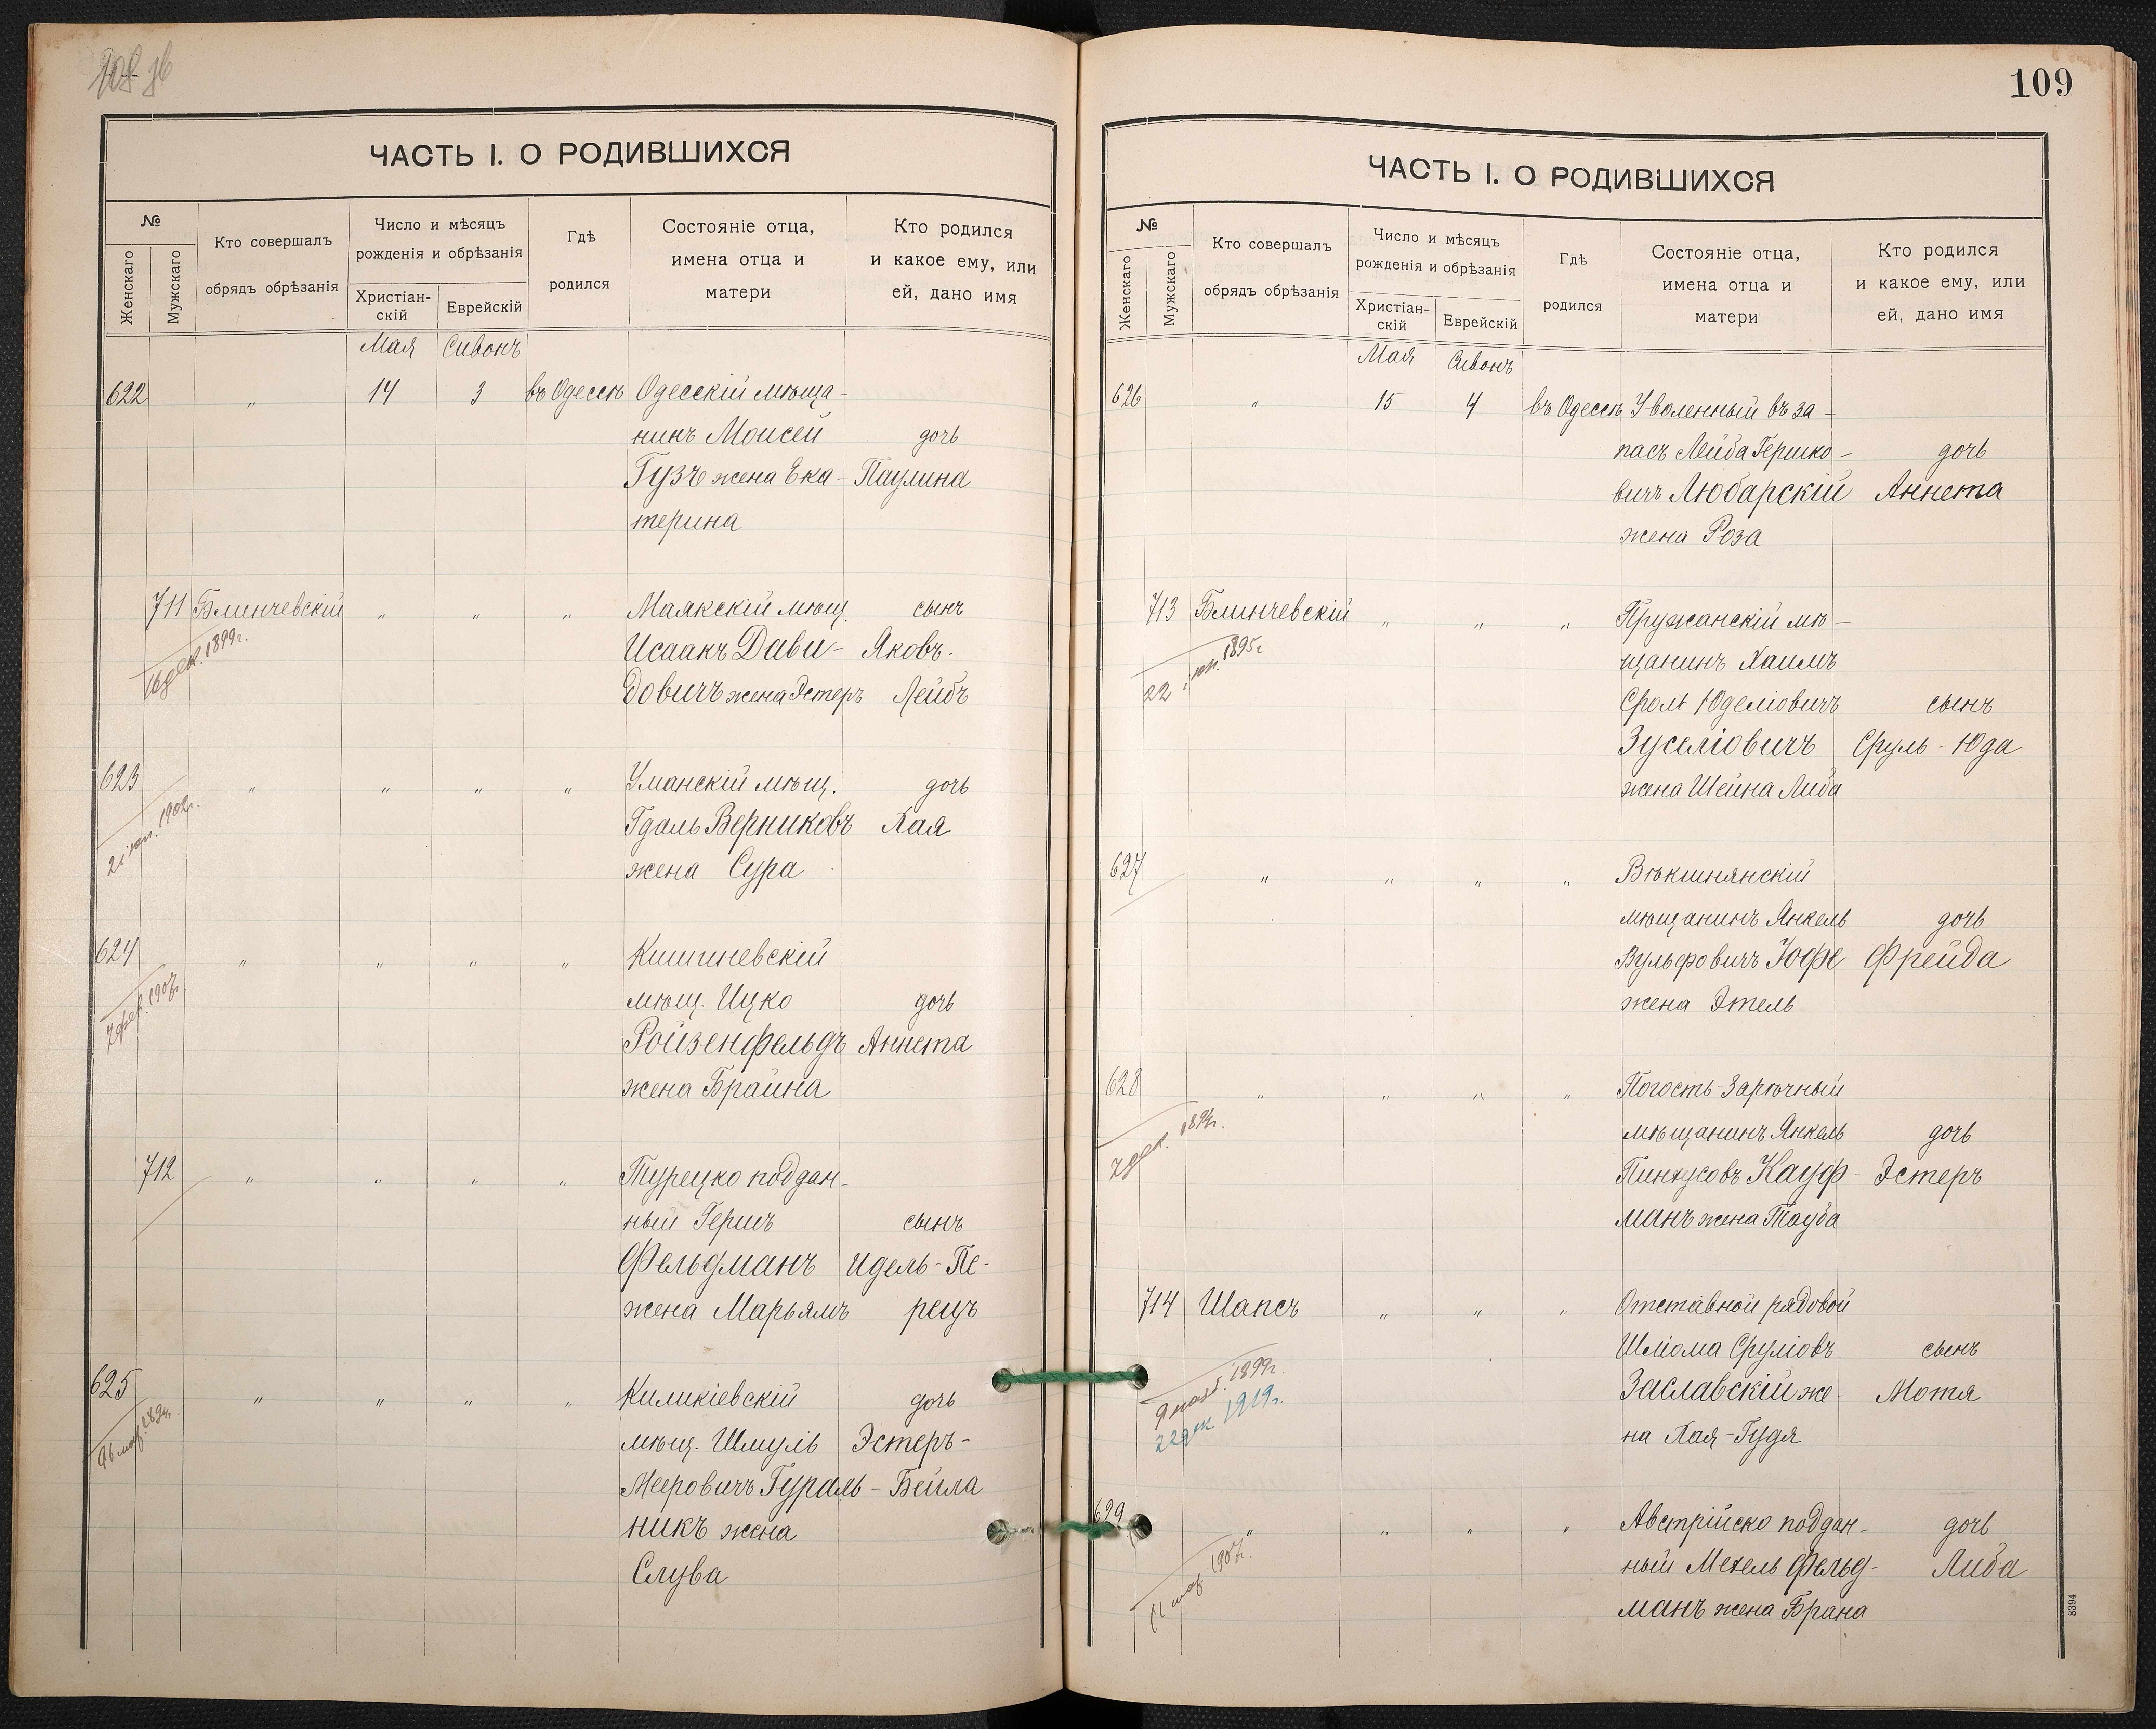 108 об
ЧАСТЬ I. О РОДИВШИХСЯ
№
Женскаго
Мужскаго
Кто совершалъ
обрядъ обрѣзанія
Число и мѣсяцъ
рожденія и обрѣзанія
Христіан-
скій
Еврейскій
Гдѣ
родился
Состояніе отца,
имена отца и
матери
Кто родился
и какое ему, или
ей, дано имя
Мая Сивонъ
622 „ 14 3 въ Одессѣ Одесскій мѣща-
нинъ Моисей дочь
Гузъ жена Ека- Паулина
терина
711 Блинчевскій „ „ „ Маякскій мѣщ. сынъ
16 дек. 1899г.
Исаакъ Дави- Яковъ-
довичъ жена Эстеръ Лейбъ
623 „ „ „ „ Уманскій мѣщ. дочь
1902г.
Гдаль Верниковъ Хая
жена Сура
624 „ „ „ „ Кишиневскій
мѣщ. Ицко дочь
7 фев. 1907г.
Ройзенфельдъ Аннета
жена Брайна
712 „ „ „ „ Турецко поддан-
ный Гершъ сынъ
Фельдманъ Идель-Пе-
жена Марьямъ рецъ
625 „ „ „ „ Киликіевскій дочь
мѣщ. Шмуль Эстеръ-
Мееровичъ Гураль- Бейла
никъ жена
Слува
109
ЧАСТЬ I. О РОДИВШИХСЯ
№
Женскаго
Мужскаго
Кто совершалъ
обрядъ обрѣзанія
Число и мѣсяцъ
рожденія и обрѣзанія
Христіан-
скій
Еврейскій
Гдѣ
родился
Состояніе отца,
имена отца и
матери
Кто родился
и какое ему, или
ей, дано имя
Мая Сивонъ
626 „ 15 4 въ Одессѣ Уволенный въ за-
пасъ Лейба Гершко- дочь
вичъ Любарскій Аннета
жена Роза
713 Блинчевскій „ „ „ Пружанскій мѣ-
22 1895г
щанинъ Хаимъ
Сроль Юделіовичъ сынъ
Зуселіовичъ Сруль-Юда
жена Шейна Либа
627 „ „ „ „ Вѣкшнянскій
мѣщанинъ Янкель дочь
Вульфовичъ Юфе Фрейда
жена Этель
628 „ „ „ „ Погость-Зарѣчный
мѣщанинъ Янкель дочь
7 дек.
Пинхусовъ Кауф- Эстеръ
манъ жена Тауба
714 Шапсъ „ „ „ Отставной рядовой
Шлiома Сруліовъ сынъ
9 нояб. 1899г.
22 дек 1919г.
Заславскій же- Мотя
на Хая-Гудя
629 „ „ „ „ Австрійско поддан- дочь
1907г.
ный Мехель Фельд- Либа
манъ жена Брана
8394